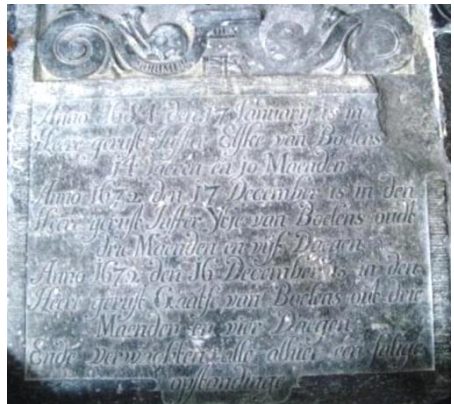 Anno 1684 den 17 Januarij is in
Heere gerust Juffer Elske van Boelens
14 Jaeren en 10 Maenden
Anno 1675. den 17 December is in den
Heer gerust Juffer Ytje van Boelens oudt
drie Maenden en vijf Daegen
Anno 1675. den 16 December is in den
Heer gerust Gaatse van Boelens out drie
Maenden en vier Daegen
Ende verwachten alle alhier een salige
opstandinge